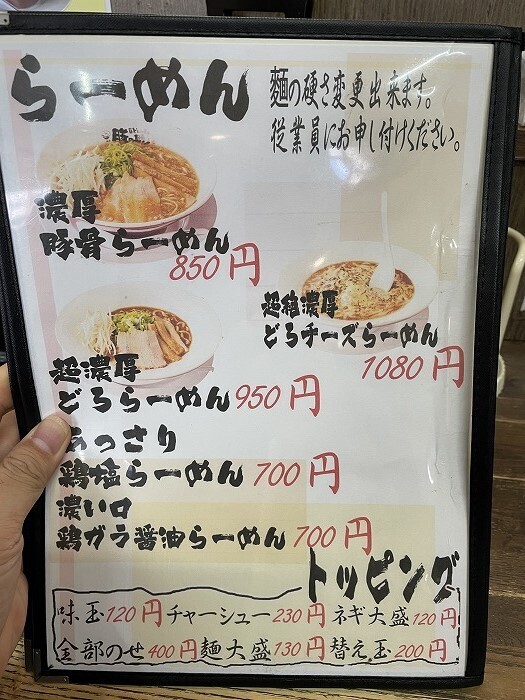 らーめん
麺の硬さ変更出来ます。
従業員にお申し付けください。
濃厚
豚骨らーめん
850円
超絶濃厚
どろチーズらーめん
1080円
超濃厚
どろらーめん 950円
あっさり
鶏塩らーめん 700円
濃い口
鶏ガラ醤油らーめん 700円
トッピング
味玉120円 チャーシュー230円 ネギ大盛120円
全部のせ400円 麺大盛130円 替え玉200円